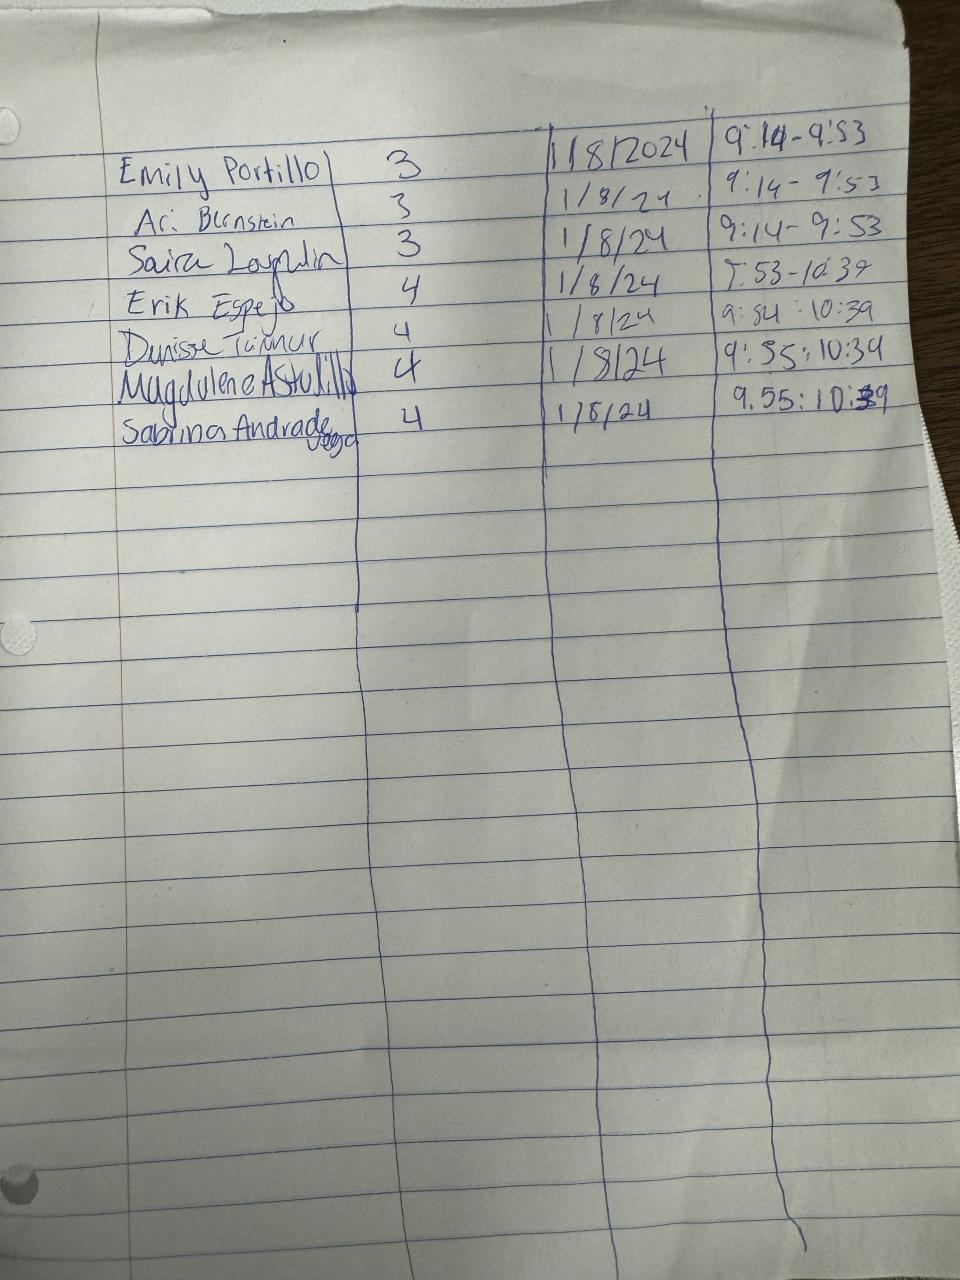 Emily Portillo 3 1/8/2024 9:14-9:53
Ari Bernstein 3 1/8/24 9:14-9:53
Saira 3 1/8/24 9:14-9:53
Erik Espejo 4 1/8/24 9:53-10:39
4 1/8/24 10:39
Magdalena Astudillo 4 1/8/24 9:55:10:39
Sabrina Andrade Vega 4 1/8/24 9.55:10:39